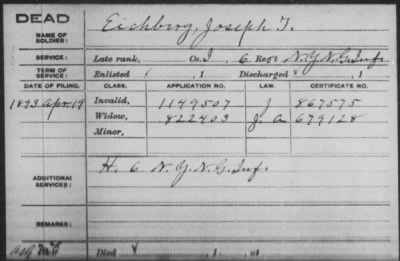 DEAD
NAME OF SOLDIER: Eichberg, Joseph T.
SERVICE: Late rank, Co. I, 6 Reg't N.Y.N.G. Inf.
TERM OF SERVICE: Enlisted , 1 Discharged , 1
DATE OF FILING. CLASS. APPLICATION NO. LAW. CERTIFICATE NO.
1893 Apr. 19 Invalid, 1149507 J 867575
Widow, 822403 J a 679128
Minor,
ADDITIONAL SERVICES: H. 6 N.Y.N.G. Inf.
REMARKS:
Died , 1